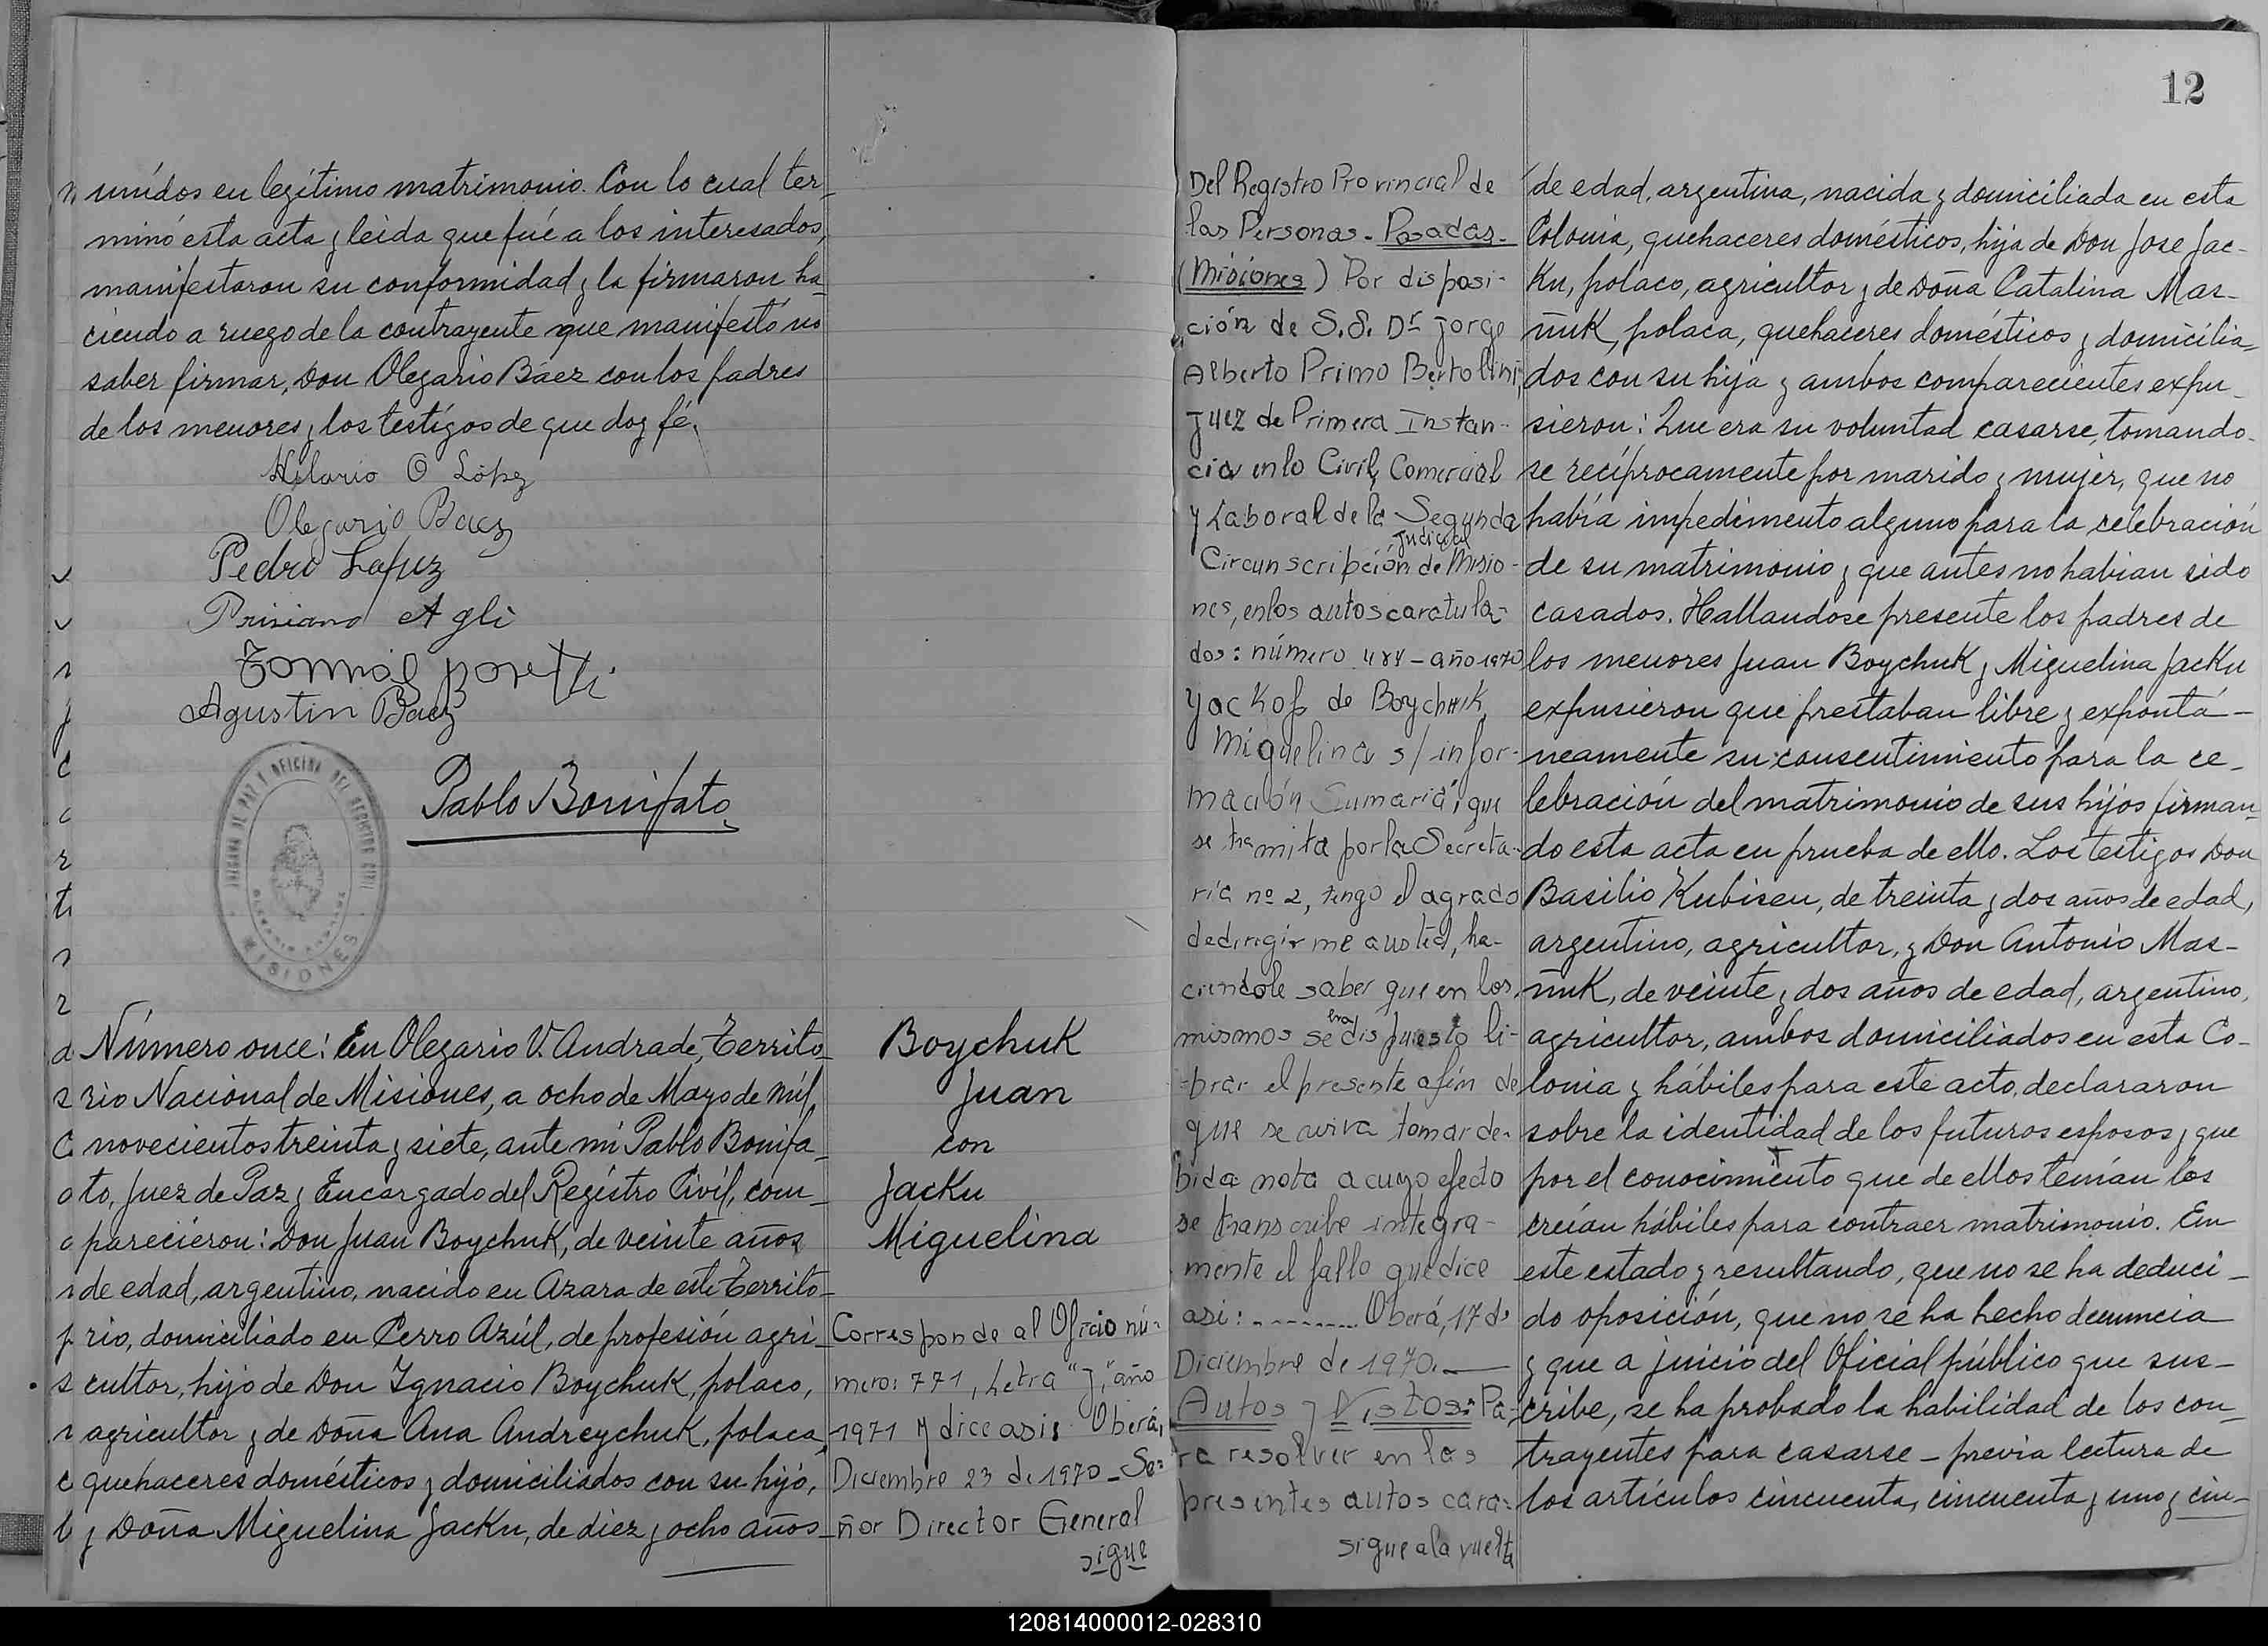 unidos en legítimo matrimonio. Con lo cual ter-
minó esta acta y leida que fué a los interesados,
manifestaron su conformidad y la firmaron ha-
ciendo a ruego de la contrayente que manifestó no
saber firmar, Don Olegario Báez con los padres
de los menores y los testígos de que doy fé.
Hilario O López
Olegario Baez
Pedro
Agli
Agustin Baez
Pablo Bonifato
MISIONES
Número once: En Olegario V. Andrade, Territo-
rio Nacional de Misiones, a ocho de Mayo de mil
novecientos treinta y siete, ante mi Pablo Bonifa-
to, Juez de Paz y Encargado del Registro Civil, com-
pareciéron: Don Juan Boychuk, de veinte años
de edad, argentino, nacido en Azara de este Territo-
rio, domiciliado en Cerro Azúl, de profesión agri-
cultor, hijo de Don Ygnacio Boychuk, polaco,
agricultor y de Doña Ana Andreychuk, polaca,
quehaceres domésticos y domiciliados con su hijo,
y Doña Miguelina Jacku, de diez y ocho años
Boychuk
Juan
con
Jacku
Miguelina
Corresponde al Oficio nú-
mero: 771, Letra "J", año
1971 y dice asi: Oberá,
Diciembre 23 de 1970 - Se-
ñor Director General
sigue
12
Del Registro Provincial de
las Personas - Posadas -
(Misiones) Por disposi-
ción de S.S. Dr Jorge
Alberto Primo Bertolini,
Juez de Primera Instan-
cia en lo Civil, Comercial
y Laboral de la Segunda
Judicial
Circunscripción de Misio-
nes, en los autos caratula-
dos: número 484 - año 1970
Yackof de Boychuk
Miguelina s/ infor-
mación Sumaria", que
se tramita por la Secreta-
ría nº 2, tengo el agrado
de dirigirme a usted, ha-
ciendole saber que en los
mismos se ha dispuesto li-
brar el presente a fin de
que se sirva tomar de-
bida nota a cuyo efecto
se transcribe integra-
mente el fallo que dice
asi: -------- Oberá, 17 de
Diciembre de 1970.—
Autos y Vistos: Pa-
ra resolver en los
presentes autos cara-
sigue a la vuelta
de edad, argentina, nacida y domiciliada en esta
Colonia, quehaceres domésticos, hija de Don Jose Jac-
ku, polaco, agricultor y de Doña Catalina Mas-
ñuk, polaca, quehaceres domésticos y domicilia-
dos con su hija y ambos comparecientes expu-
sieron: Que era su voluntad casarse, tomando-
se recíprocamente por marido y mujer, que no
había impedimento alguno para la celebración
de su matrimonio y que antes no habian sido
casados. Hallandose presente los padres de
los menores Juan Boychuk y Miguelina Jacku
expusieron que prestaban libre y expontá-
neamente su consentimiento para la ce-
lebración del matrimonio de sus hijos firman-
do esta acta en prueba de ello. Los testigos Don
Basilio Kubiseu, de treinta y dos años de edad,
argentino, agricultor, y Don Antonio Mas-
ñuk, de veinte y dos años de edad, argentino,
agricultor, ambos domiciliados en esta Co-
lonia y hábiles para este acto, declararon
sobre la identidad de los futuros esposos y que
por el conocimiento que de ellos tenían los
creían hábiles para contraer matrimonio. En
este estado y resultando, que no se ha deduci-
do oposición, que no se ha hecho denuncia
y que a juicio del Oficial público que sus-
cribe, se ha probado la habilidad de los con-
trayentes para casarse - previa lectura de
los artículos cincuenta, cincuenta y uno y cin-
120814000012-028310